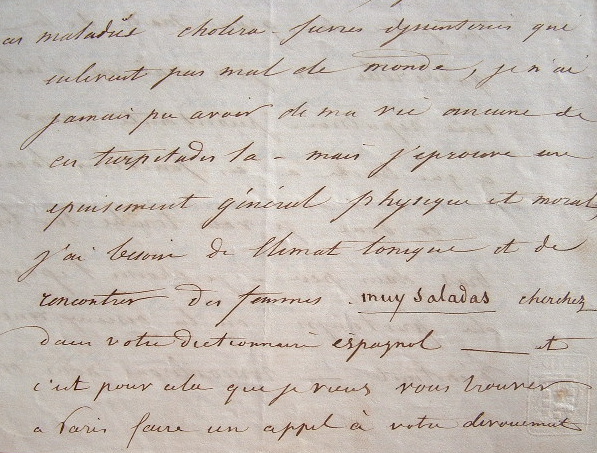 ces maladies cholera - fievres dysenteries qui
enlevent pas mal de monde, je n'ai
jamais pu avoir de ma vie aucune de
ces turpitudes la - mais j'eprouve une
epuisement général physique et moral,
j'ai besoin de Climat tonique et de
rencontrer des femmes muy saladas cherchez
dans votre dictionnaire espagnol — et
c'est pour cela que je veux vous trouver
a Paris faire un appel à votre devouement